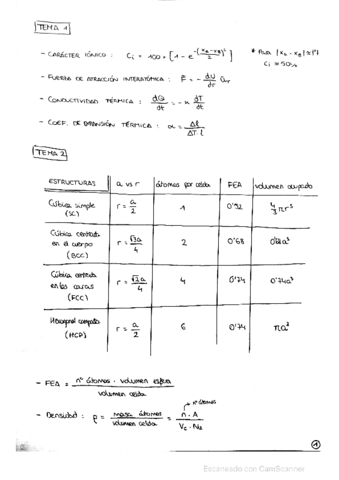 TEMA 1
- CARÁCTER IÓNICO : Ci = 100 × [1 - e^-(xa - xb)²/2] * Para |xa - xb| ≈ 1'7
Ci = 50%
- FUERZA DE ATRACCIÓN INTERATÓMICA : F = - dU/dr ar
- CONDUCTIVIDAD TÉRMICA : dQ/dt = - k dT/dt
- COEF. DE EXPANSIÓN TÉRMICA : α = Δl/ΔT l
TEMA 2
ESTRUCTURAS a vs r átomos por celda FEA volumen ocupado
Cúbica simple (SC) r = a/2 1 0'52 4/3 πr³
Cúbica centrada en el cuerpo (BCC) r = √3a/4 2 0'68 0'68a³
Cúbica centrada en las caras (FCC) r = √2a/4 4 0'74 0'74a³
Hexagonal compacta (HCP) r = a/2 6 0'74 πa³
- FEA = nº átomos · volumen esfera / volumen celda
- Densidad : ρ = masa átomos / volumen celda = n · A / Vc · NA
nº átomos
1
Escaneado con CamScanner